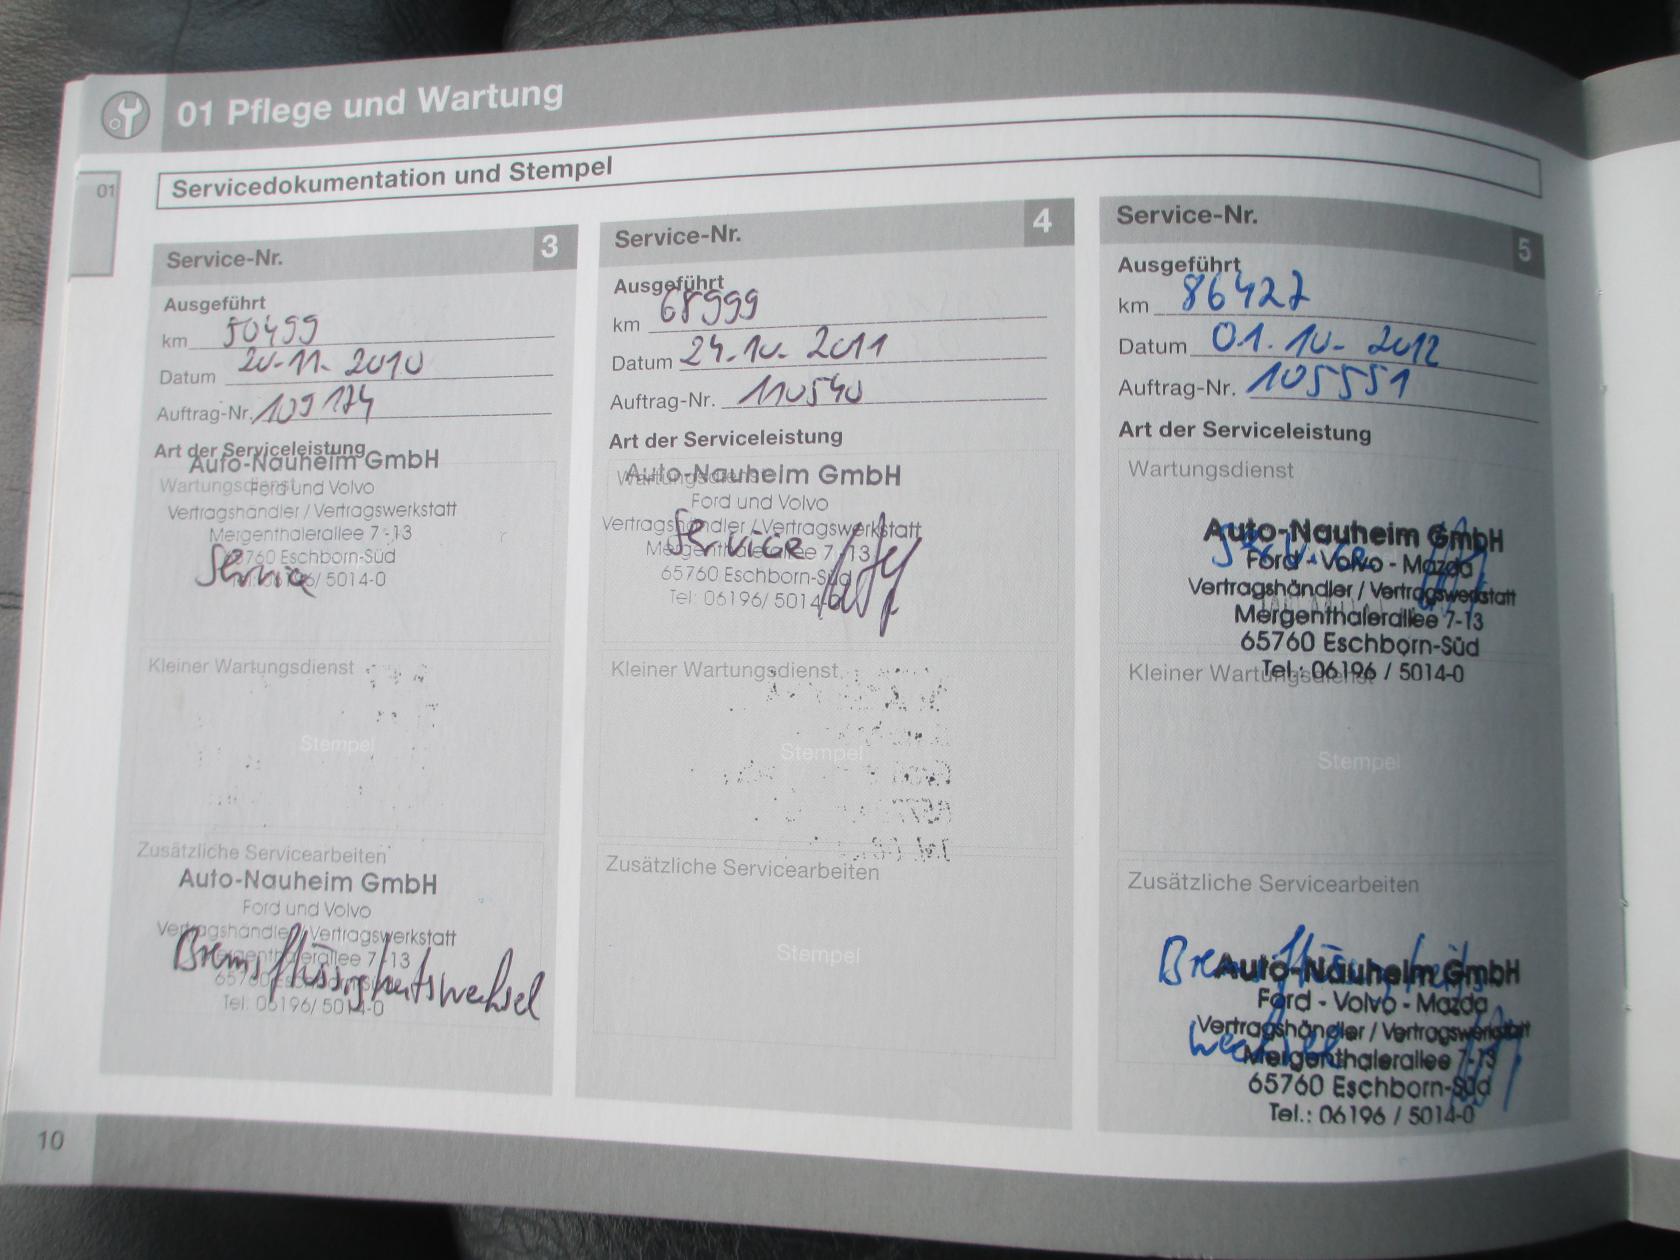 01 Pflege und Wartung
01
Servicedokumentation und Stempel
Service-Nr. 3
Ausgeführt
km 50499
Datum 20.11. 2010
Auftrag-Nr. 109174
Art der Serviceleistung
Auto-Nauheim GmbH
Wartungsdienst
Ford und Volvo
Vertragshändler / Vertragswerkstatt
Mergenthalerallee 7-13
65760 Eschborn-Süd
Service
Tel: 06196/ 5014-0
Kleiner Wartungsdienst
Stempel
Zusätzliche Servicearbeiten
Auto-Nauheim GmbH
Ford und Volvo
Vertragshändler / Vertragswerkstatt
Mergenthalerallee 7-13
Bremsflüssigkeitswechsel
65760 Eschborn-Süd
Tel: 06196/ 5014-0
Service-Nr. 4
Ausgeführt
km 68999
Datum 24.10. 2011
Auftrag-Nr. 110540
Art der Serviceleistung
Auto-Nauheim GmbH
Wartungsdienst
Ford und Volvo
Vertragshändler / Vertragswerkstatt
Service
Mergenthalerallee 7-13
65760 Eschborn-Süd
Tel: 06196/ 5014-0
Kleiner Wartungsdienst
Stempel
Zusätzliche Servicearbeiten
Stempel
Service-Nr. 5
Ausgeführt
km 86427
Datum 01. 10. 2012
Auftrag-Nr. 105551
Art der Serviceleistung
Wartungsdienst
Auto-Nauheim GmbH
Service
Ford - Volvo - Mazda
Vertragshändler / Vertragswerkstatt
Mergenthalerallee 7-13
65760 Eschborn-Süd
Tel.: 06196 / 5014-0
Kleiner Wartungsdienst
Stempel
Zusätzliche Servicearbeiten
Bremsflüssigkeits
Auto-Nauheim GmbH
Ford - Volvo - Mazda
Vertragshändler / Vertragswerkstatt
wechsel
Mergenthalerallee 7-13
65760 Eschborn-Süd
Tel.: 06196 / 5014-0
10